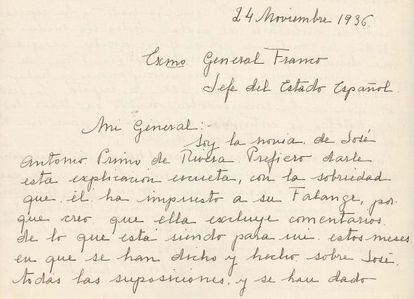 24 Noviembre 1936.
Exmo General Franco
Jefe del Estado Español.
Mi General:
Soy la novia de José
Antonio Primo de Rivera Prefiero darle
esta explicacion escueta, con la sobriedad
que él ha impuesto a su Falange, por-
que creo que ella excluye comentarios
de lo que está siendo para mi estos meses
en que se han dicho y hecho sobre José
todas las suposiciones, y se han dado